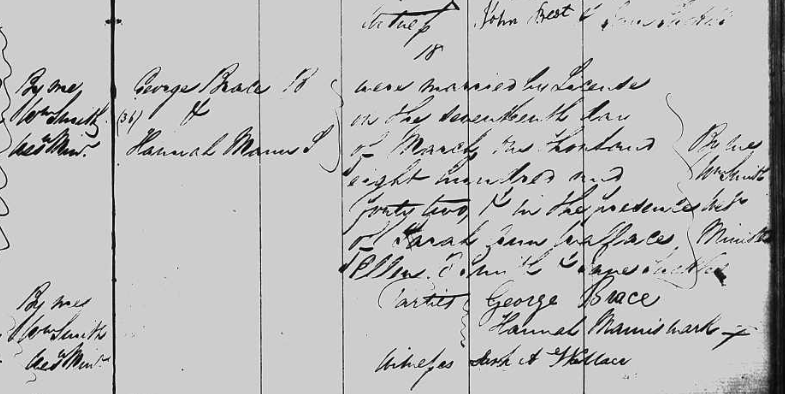 Witness John Best &
18
By me, George Brace B were married by License
Wm Smith (36) & on the seventeenth day
Wesn Minr. Hannah Mann S of March, One thousand By me
eight hundred and Wm Smith
forty two, & in the presence Wesn
of Sarah Ann Wallace, Minister
& Ellen & Jane
By me Parties George Brace
Wm Smith Hannah Mannis mark +
Wesn Minr. Witness Sarah A Wallace